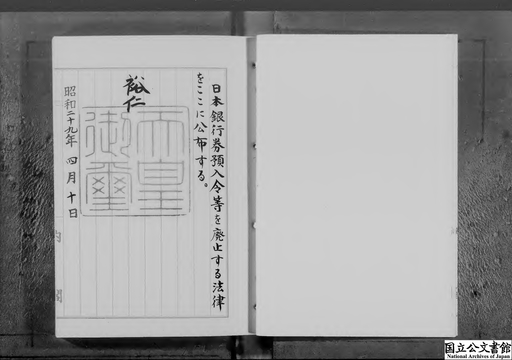 日本銀行券預入令等を廃止する法律
をここに公布する。
裕仁
天皇
御璽
昭和二十九年四月十日
国立公文書館
National Archives of Japan